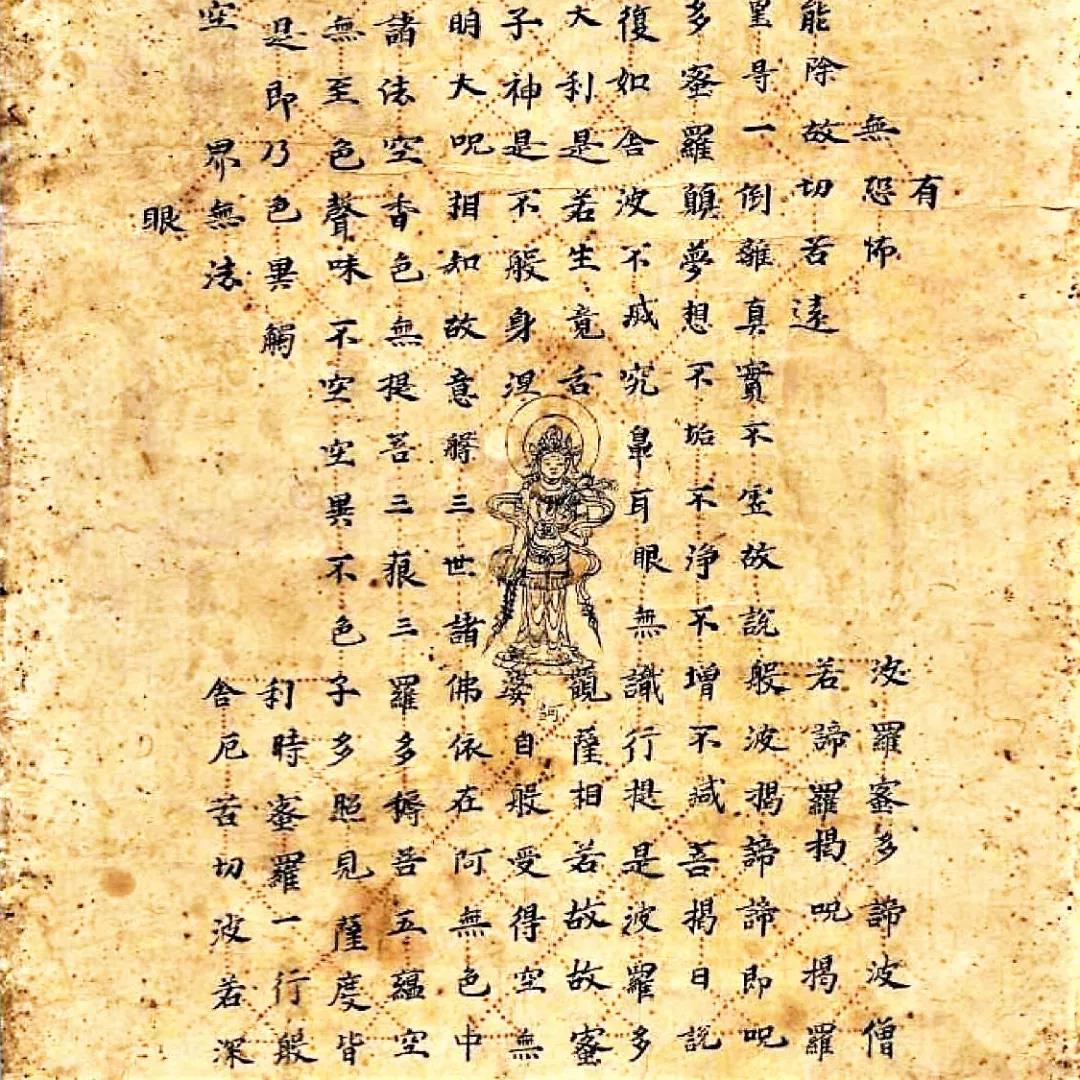 有
無恐怖
波羅蜜多諦波僧
能除故切苦遠
若諦羅揭呪揭羅
罣导一倒離真實不虛故説般波揭諦諦即呪
多蜜羅顛夢想不垢不淨不增不減菩揭曰説
復如舍波不滅究鼻耳眼無識行提是波羅多
大利是若生竟舌
觀薩相若故故蜜
子神是不般身涅
婆自般受得空無
明大呪相知故意三世諸佛依在阿無色中
諸法空香色無提菩三藐三羅多耨菩五蘊空
無至色聲味不空空異不色子多照見薩度皆
是即乃色異觸
利時蜜羅一行般
空界無法
舍厄苦切波若深
眼